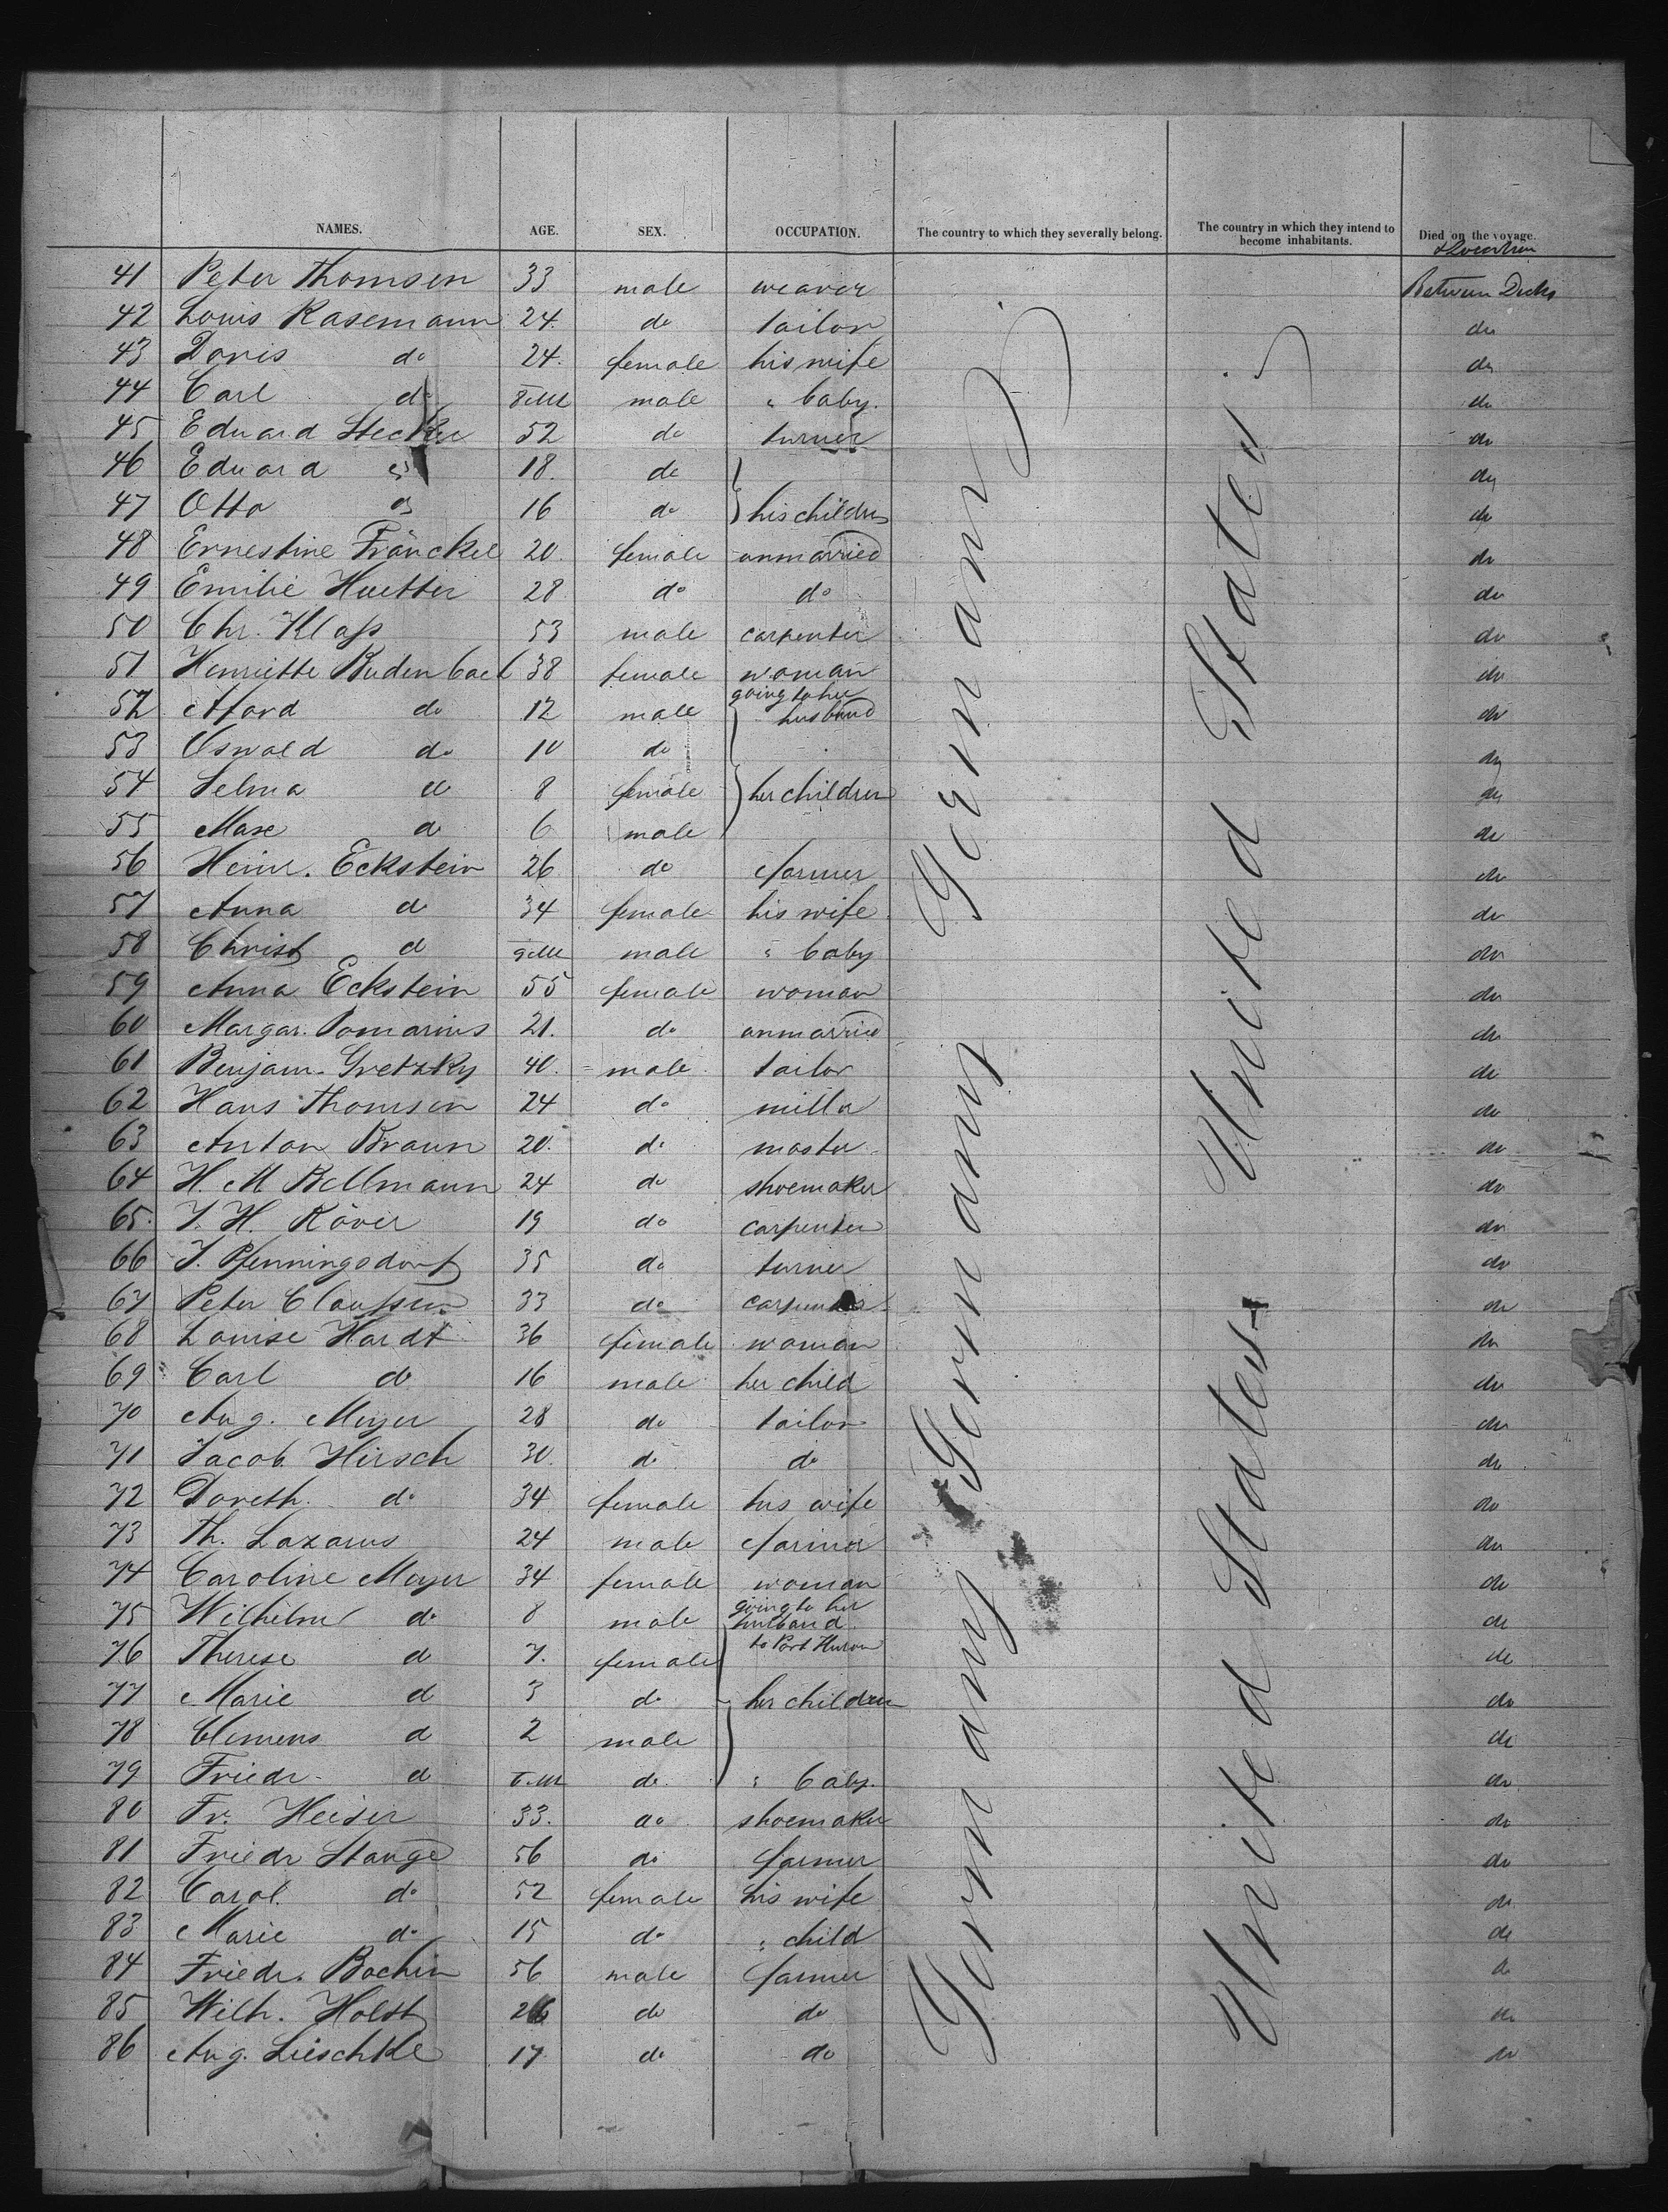 NAMES. AGE. SEX. OCCUPATION. The country to which they severally belong. The country in which they intend to become inhabitants. Died on the voyage.
41 Peter Thomsen 33 male weaver Between Decks
42 Louis Rasemann 24. do tailor do
43 Doris do 24. female his wife do
44 Carl do male " baby. do
45 Eduard 52 do turner do
46 Eduard 18. do do
47 Otto 16 do his children do
48 Ernestine Fränckel 20. female unmarried do
49 Emilie Huetter 28 do do do
50 Chr. Klaß 53 male carpenter do
51 Henriette Budenbach 38 female woman do
going to her
52 do 12 male husband do
53 Oswald do 10 do do
54 Selma do 8 female her children do
55 Max do 6 male do
56 Heinr. Eckstein 26 do farmer do
57 Anna do 34 female his wife do
58 Christ do male " baby do
59 Anna Eckstein 55 female woman do
60 Margar. Pomarius 21. do unmarried do
61 Benjam. Gretzky 40. male tailor do
62 Hans Thomsen 24 do miller do
63 Anton Braun 20. do do
64 H. M Bellmann 24 do shoemaker do
65. J. H. Röver 19 do carpenter do
66 J. Pfenningsdorf 35 do turner do
67 Peter Claußen 33 do carpenter do
68 Louise Hardt 36 female woman do
69 Carl do 16 male her child do
70 Aug. Meyer 28 do tailor do
71 Jacob Hirsch 30. do do do
72 Doreth. do 34 female his wife do
73 Th. Lazarus 24 male farmer do
74 Caroline Meyer 34 female woman do
going to her
75 Wilhelm do 8 male husband do
to Port Huron
76 Therese do 7. female do
77 Marie do 3 do her children do
78 Clemens do 2 male do
79 Friedr. do do " baby. do
80 Fr. Heiser 33. do shoemaker do
81 Friedr Stange 56 do farmer do
82 Carol. do 52 female his wife do
83 Marie do 15 do " child do
84 Friedr. Bochin 56 male farmer do
85 Wilh. Holst 26 do do do
86 Aug. Lieschke 17 do do do
Germany
Germany
Germany
United States
United States